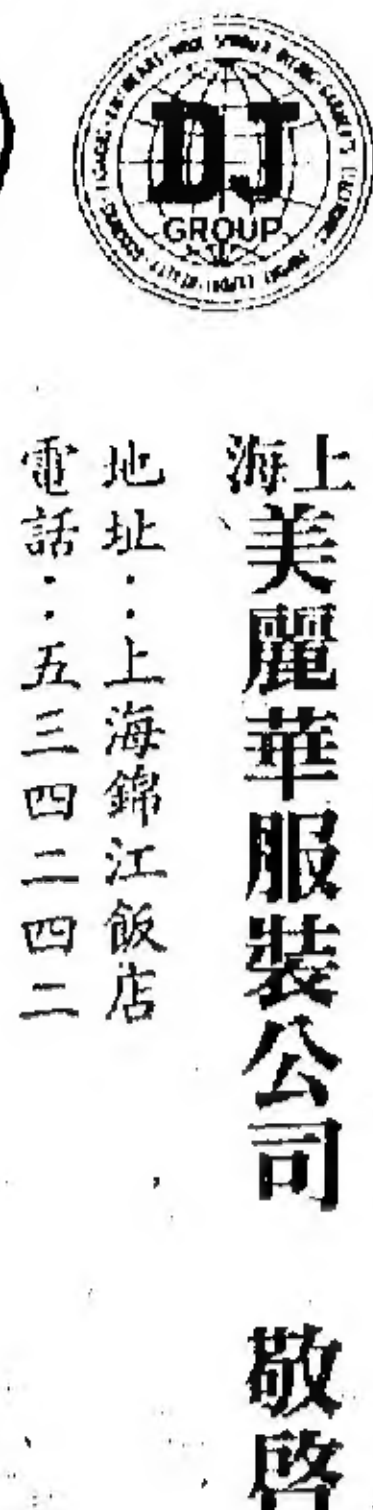 DJ
GROUP
上海美麗華服裝公司 敬啓
地址：上海錦江飯店
電話：五三四二四二